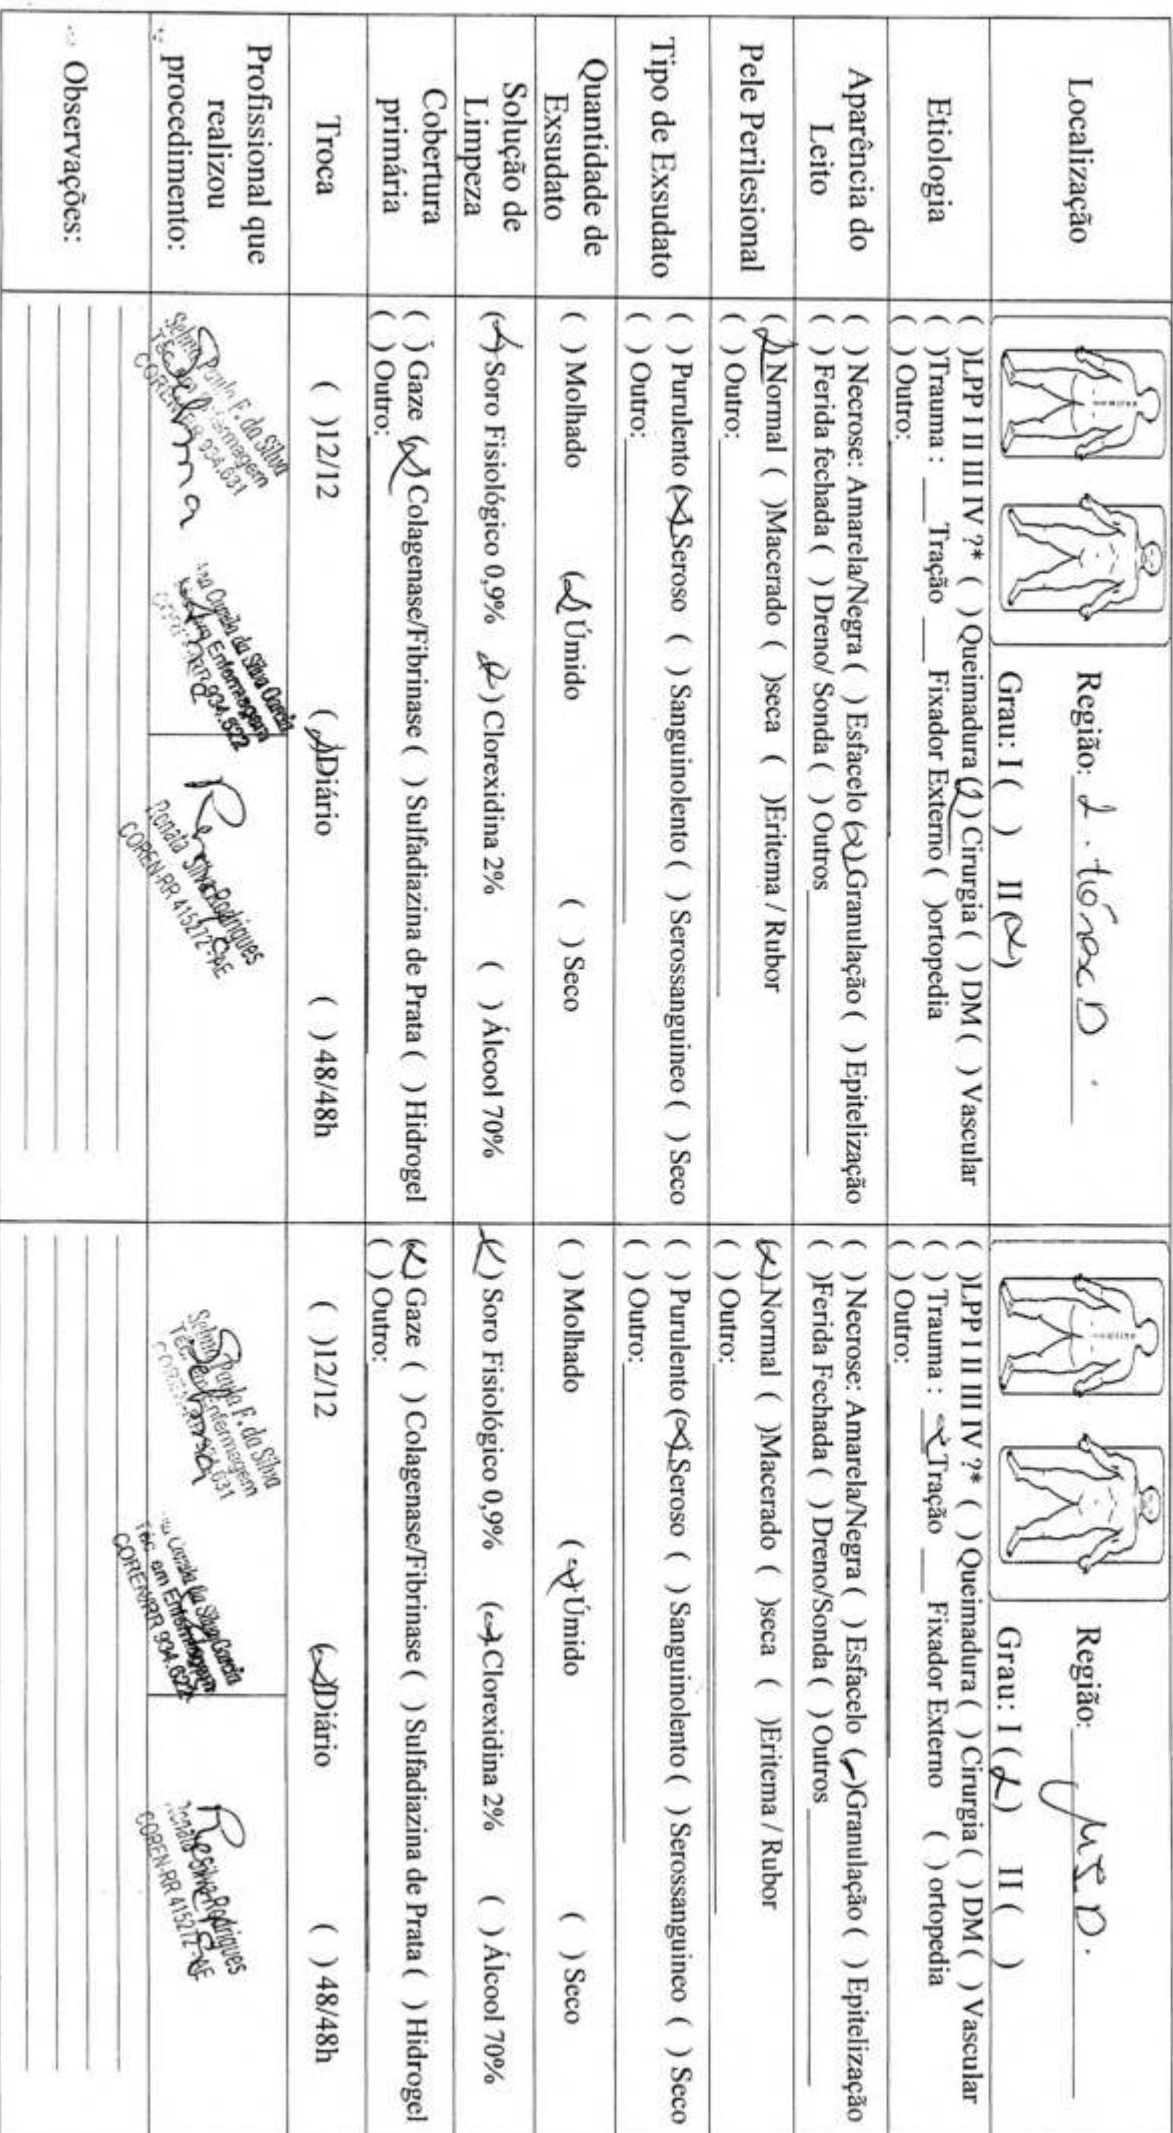 Localização
Região: 2. tórax D.
Grau: I ( ) II (x)
Região: MID.
Grau: I (x) II ( )
Etiologia
( )LPP I II III IV ?* ( )Queimadura (x) Cirurgia ( ) DM ( ) Vascular
( )Trauma : ___Tração ___ Fixador Externo ( )ortopedia
( ) Outro:
( )LPP I II III IV ?* ( )Queimadura ( ) Cirurgia ( ) DM ( ) Vascular
( ) Trauma : _x_Tração ___ Fixador Externo ( ) ortopedia
( ) Outro:
Aparência do
Leito
( ) Necrose: Amarela/Negra ( ) Esfacelo (x)Granulação ( ) Epitelização
( ) Ferida fechada ( ) Dreno/ Sonda ( ) Outros
( ) Necrose: Amarela/Negra ( ) Esfacelo (x)Granulação ( ) Epitelização
( )Ferida Fechada ( ) Dreno/Sonda ( ) Outros
Pele Perilesional
(x)Normal ( )Macerado ( )seca ( )Eritema / Rubor
( ) Outro:
(x)Normal ( )Macerado ( )seca ( )Eritema / Rubor
( ) Outro:
Tipo de Exsudato
( ) Purulento (x)Seroso ( ) Sanguinolento ( ) Serossanguineo ( ) Seco
( ) Outro:
( ) Purulento (x)Seroso ( ) Sanguinolento ( ) Serossanguineo ( ) Seco
( ) Outro:
Quantidade de
Exsudato
( ) Molhado (x)Úmido ( ) Seco
( ) Molhado (x)Úmido ( ) Seco
Solução de
Limpeza
(x)Soro Fisiológico 0,9% (x) Clorexidina 2% ( ) Álcool 70%
(x) Soro Fisiológico 0,9% (x)Clorexidina 2% ( ) Álcool 70%
Cobertura
primária
( ) Gaze (x)Colagenase/Fibrinase ( ) Sulfadiazina de Prata ( ) Hidrogel
( ) Outro:
(x) Gaze ( ) Colagenase/Fibrinase ( ) Sulfadiazina de Prata ( ) Hidrogel
( ) Outro:
Troca
( )12/12 (x)Diário ( ) 48/48h
( )12/12 (x)Diário ( ) 48/48h
Profissional que
realizou
procedimento:
Selma Paula F. da Silva
Téc. Enfermagem
COREN-RR 934.631
Selma
Camila da Silva Garcia
Enfermagem
934.622
Renata Silva Rodrigues
COREN-RR 415272-AE
Selma Paula F. da Silva
Téc. Enfermagem
Selma
Camila da Silva Garcia
Téc em Enfermagem
COREN/RR 934.622
Renata Silva Rodrigues
COREN-RR 415272-AE
Observações: